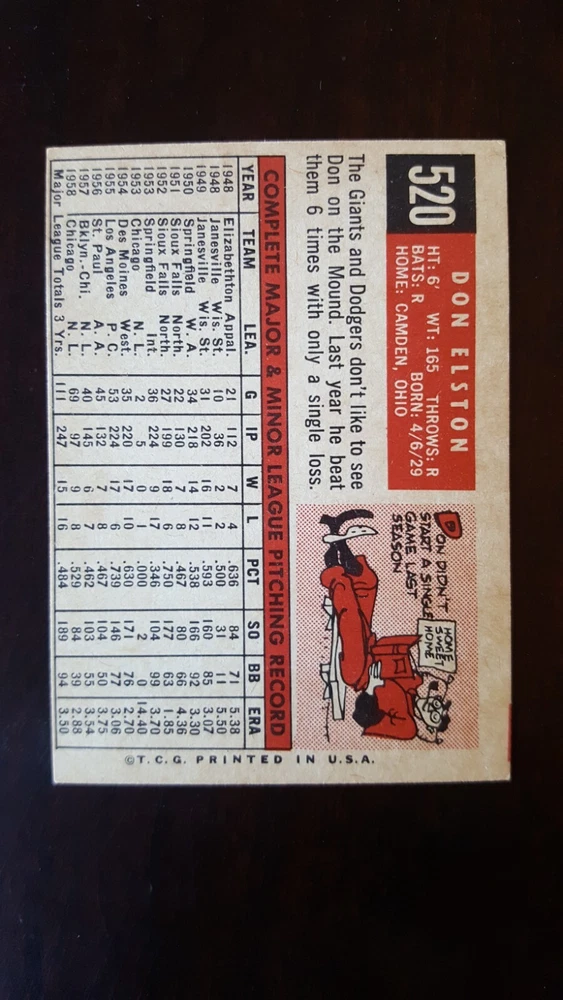 520
DON ELSTON
HT: 6' WT: 165 THROWS: R
BATS: R BORN: 4/6/29
HOME: CAMDEN, OHIO
The Giants and Dodgers don't like to see
Don on the Mound. Last year he beat
them 6 times with only a single loss.
DON DIDN'T
START A SINGLE
GAME LAST
SEASON
HOME
SWEET
HOME
COMPLETE MAJOR & MINOR LEAGUE PITCHING RECORD
YEAR TEAM LEA. G IP W L PCT SO BB ERA
1948 Elizabethton Appal. 21 112 7 4 .636 84 71 5.38
1948 Janesville Wis. St. 10 36 2 2 .500 31 11 5.50
1949 Janesville Wis. St. 31 202 16 11 .593 160 85 3.07
1950 Springfield W. A. 34 218 14 12 .538 166 92 3.30
1951 Sioux Falls North. 22 130 7 8 .467 80 66 4.36
1952 Sioux Falls North. 27 199 18 6 .750 177 65 2.85
1953 Springfield Int. 36 224 9 17 .346 104 99 3.74
1953 Chicago N. L. 2 5 0 1 .000 2 0 14.40
1954 Des Moines West. 35 220 17 10 .630 131 76 2.70
1955 Los Angeles P. C. 53 224 17 6 .739 146 77 3.06
1956 St. Paul A. A. 45 132 7 8 .467 104 50 3.75
1957 Bklyn.-Chi. N. L. 40 145 6 7 .462 103 55 3.54
1958 Chicago N. L. 69 97 9 8 .529 84 39 2.88
Major League Totals 3 Yrs. 111 247 15 16 .484 189 94 3.50
©T. C. G. PRINTED IN U.S.A.